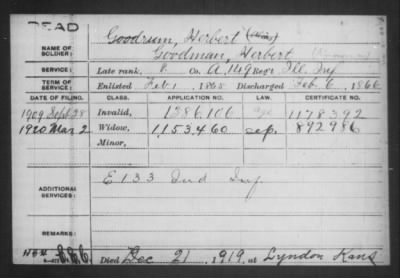 DEAD
Goodrum, Herbert (Alias)
NAME OF SOLDIER:
Goodman, Herbert
SERVICE:
Late rank, P Co. A, 149 Reg't Ill. Inf
TERM OF SERVICE:
Enlisted Feb 1 1865 Discharged Feb. 6, 1866
DATE OF FILING. CLASS. APPLICATION NO. LAW. CERTIFICATE NO.
1909 Sept 28 Invalid, 1386,106 1178392
1920 Mar 2 Widow, 1153460 sep. 892986
Minor,
ADDITIONAL SERVICES:
E 133 Ind Inf
REMARKS:
Died Dec 21, 1919, at Lyndon Kans